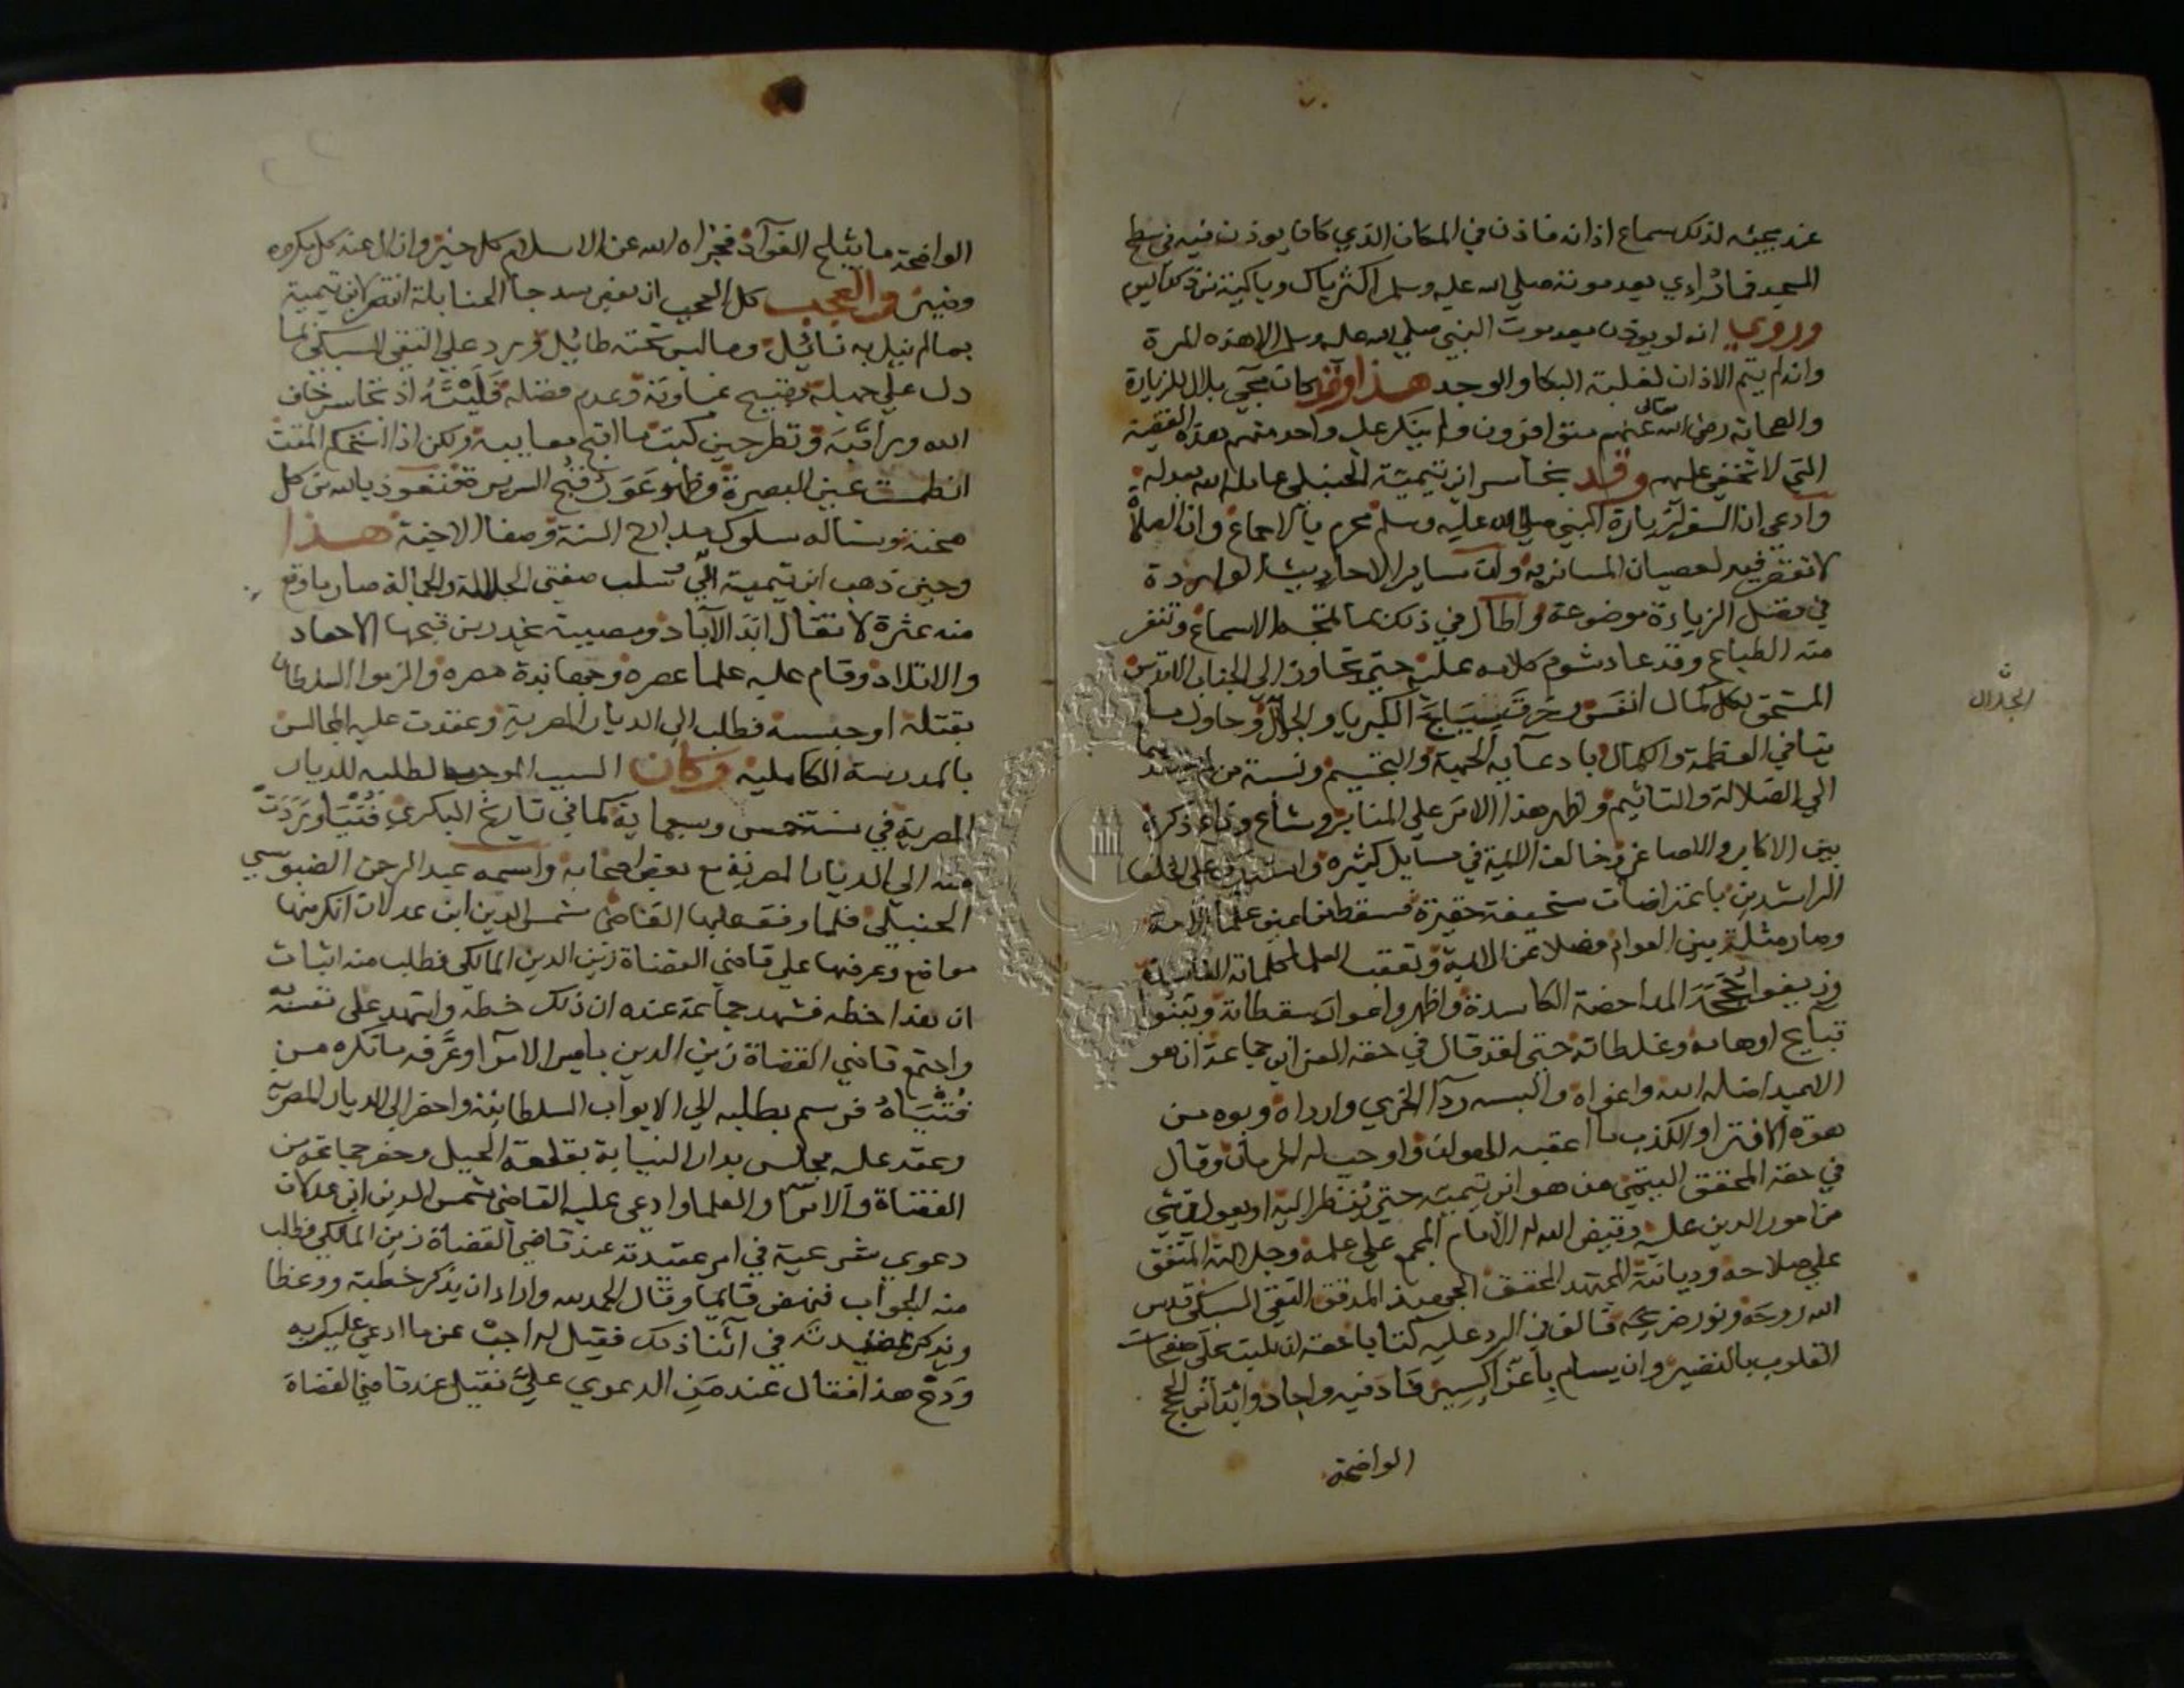 عند مجيئه لذلك سماع اذانه فاذن في المكان الذي كان يوذن فيه في سطح
المسجد فما رأي بعد موته صلي الله عليه وسلم اكثر باك وباكية من ذلك اليوم
وروي انه لم يوذن بعد موت النبي صلي الله عليه وسلم الا هذه المرة
وانه لم يتم الاذان لغلبة البكا والوجد هذا وقد كان مجي بلال للزيارة
والصحابة رضي الله تعالى عنهم متوافرون ولم ينكر عليه واحد منهم بهذه القضية
التي لا تخفي عليهم وقد تجاسر ابن تيمية الحنبلي عامله الله بعدله
وادعي ان السفر لزيارة النبي صلي الله عليه وسلم محرم بالاجماع وان الصلاة
لا تقصر فيه لعصيان المسافر به وان ساير الاحاديث الواردة
في فضل الزيارة موضوعة واطال في ذلك بما تمجه الاسماع وتنفر
منه الطباع وقد عاد شوم كلامه عليه حتي تجاوز الى الجناب الاقدس
المستحق لكل كمال انفس وخرق سياج الكبريا والجلال وحاول ما
ينافي العظمة والكمال بادعايه الجهة والتجسيم ونسبة من لم يعتقدهما
الي الضلالة والتاثيم واظهر هذا الامر علي المنابر وشاع وذاع ذكره
بين الاكابر والاصاغر وخالف الايمة في مسايل كثيرة واستدرك على الخلفا
الراشدين باعتراضات سخيفة حقيرة فسقط من اعين علما الامة
وصار مثلة بين العوام فضلا عن الايمة وتعقب العلما كلماته الفاسدة
وزيفوا حججه الداحضة الكاسدة واظهروا عوار سقطاته وبينوا
قبايح اوهامه وغلطاته حتى لقد قال في حقه العز ابن جماعة ان هو
الا عبد اضله الله واغواه والبسه ردآ الخزي وارداه وبوه من
قوة الافترا والكذب ما اعقبه الهوان واوجب له الحرمان وقال
في حقه المحقق الهيتمي من هو ابن تيمية حتي ينظر اليه او يعول في شي
من امور الدين عليه وقيض الله له الامام المجمع علي علمه وجلالته المتفق
علي صلاحه وديانته المجتهد المحقق الجهبذ المدقق التقي السبكي قدس
الله روحه ونور ضريحه فالف في الرد عليه كتابا حقه ان يكتب على صفحات
القلوب بالنضير وان يسام باعز اكسير فاد فيه واجاد واتى من الحجج
الواضحة
الجلال
الواضحة ما يثلج الفوآد فجزاه الله عن الاسلام كل خير وازال عنه كل مكروه
وضير والعجب كل العجب ان بعض سذجا الحنابلة انتصر لابن تيمية
بما لم ينل به نائل وما ليس تحته طائل ورد علي التقي السبكي بما
دل علي جهله وقبيح غباوته وعدم فضله فليته اذ تجاسر خاف
الله وراقبه ونظر حين كتب ما اقبح معايبه ولكن اذا استحكم المقت
انطمست عين البصيرة وظهر عوار قبح السريرة فنعوذ بالله من كل
محنة ونساله سلوك مدارج السنة وصفا الاجنة هذا
وحين ذهب ابن تيمية الي سلب صفتي الجلالة والجمالة صار ما وقع
منه عثرة لا تقال ابد الآباد ومصيبة تحدر من قبحها الاحفاد
والاتلاد وقام عليه علما عصره وجهابذة مصره والزموا السلطان
بقتله او حبسه فطلب الى الديار المصرية وعقدت عليه المجالس
بالمدرسة الكاملية وكان السبب الموجب لطلبه للديار
المصرية في سنة خمس وسبعماية كما في تاريخ البكري فتيا وردت
منه الي الديار المصرية مع بعض اصحابه واسمه عبد الرحمن الضبوسي
الحنبلي فلما وقف عليها القاضي شمس الدين ابن عدلان انكر منها
مواضع وعرضها علي قاضي القضاة زين الدين المالكي فطلب منه اثبات
ان هذا خطه فشهد جماعة عنده ان ذلك خطه واشهد على نفسه به
واجتمع قاضي القضاة زين الدين بامير الامرآ وعرفه ما نكره من
فتياه فرسم بطلبه الي الابواب السلطانية واحضر الى الديار المصرية
وعقد عليه مجلس بدار النيابة بقلعة الجبل وحضر جماعة من
القضاة والامرآ والعلما وادعى عليه القاضي شمس الدين ابن عدلان
دعوي شرعية في امر عقيدته عند قاضي القضاة زين الدين المالكي فطلب
منه الجواب فنهض قايما وقال الحمد لله واراد ان يذكر خطبة ووعظا
ويذكر عقيدته في اثنا ذلك فقيل له اجب عن ما ادعي عليك به
ودع هذا فقال عند من الدعوي علي فقيل عند قاضي القضاة